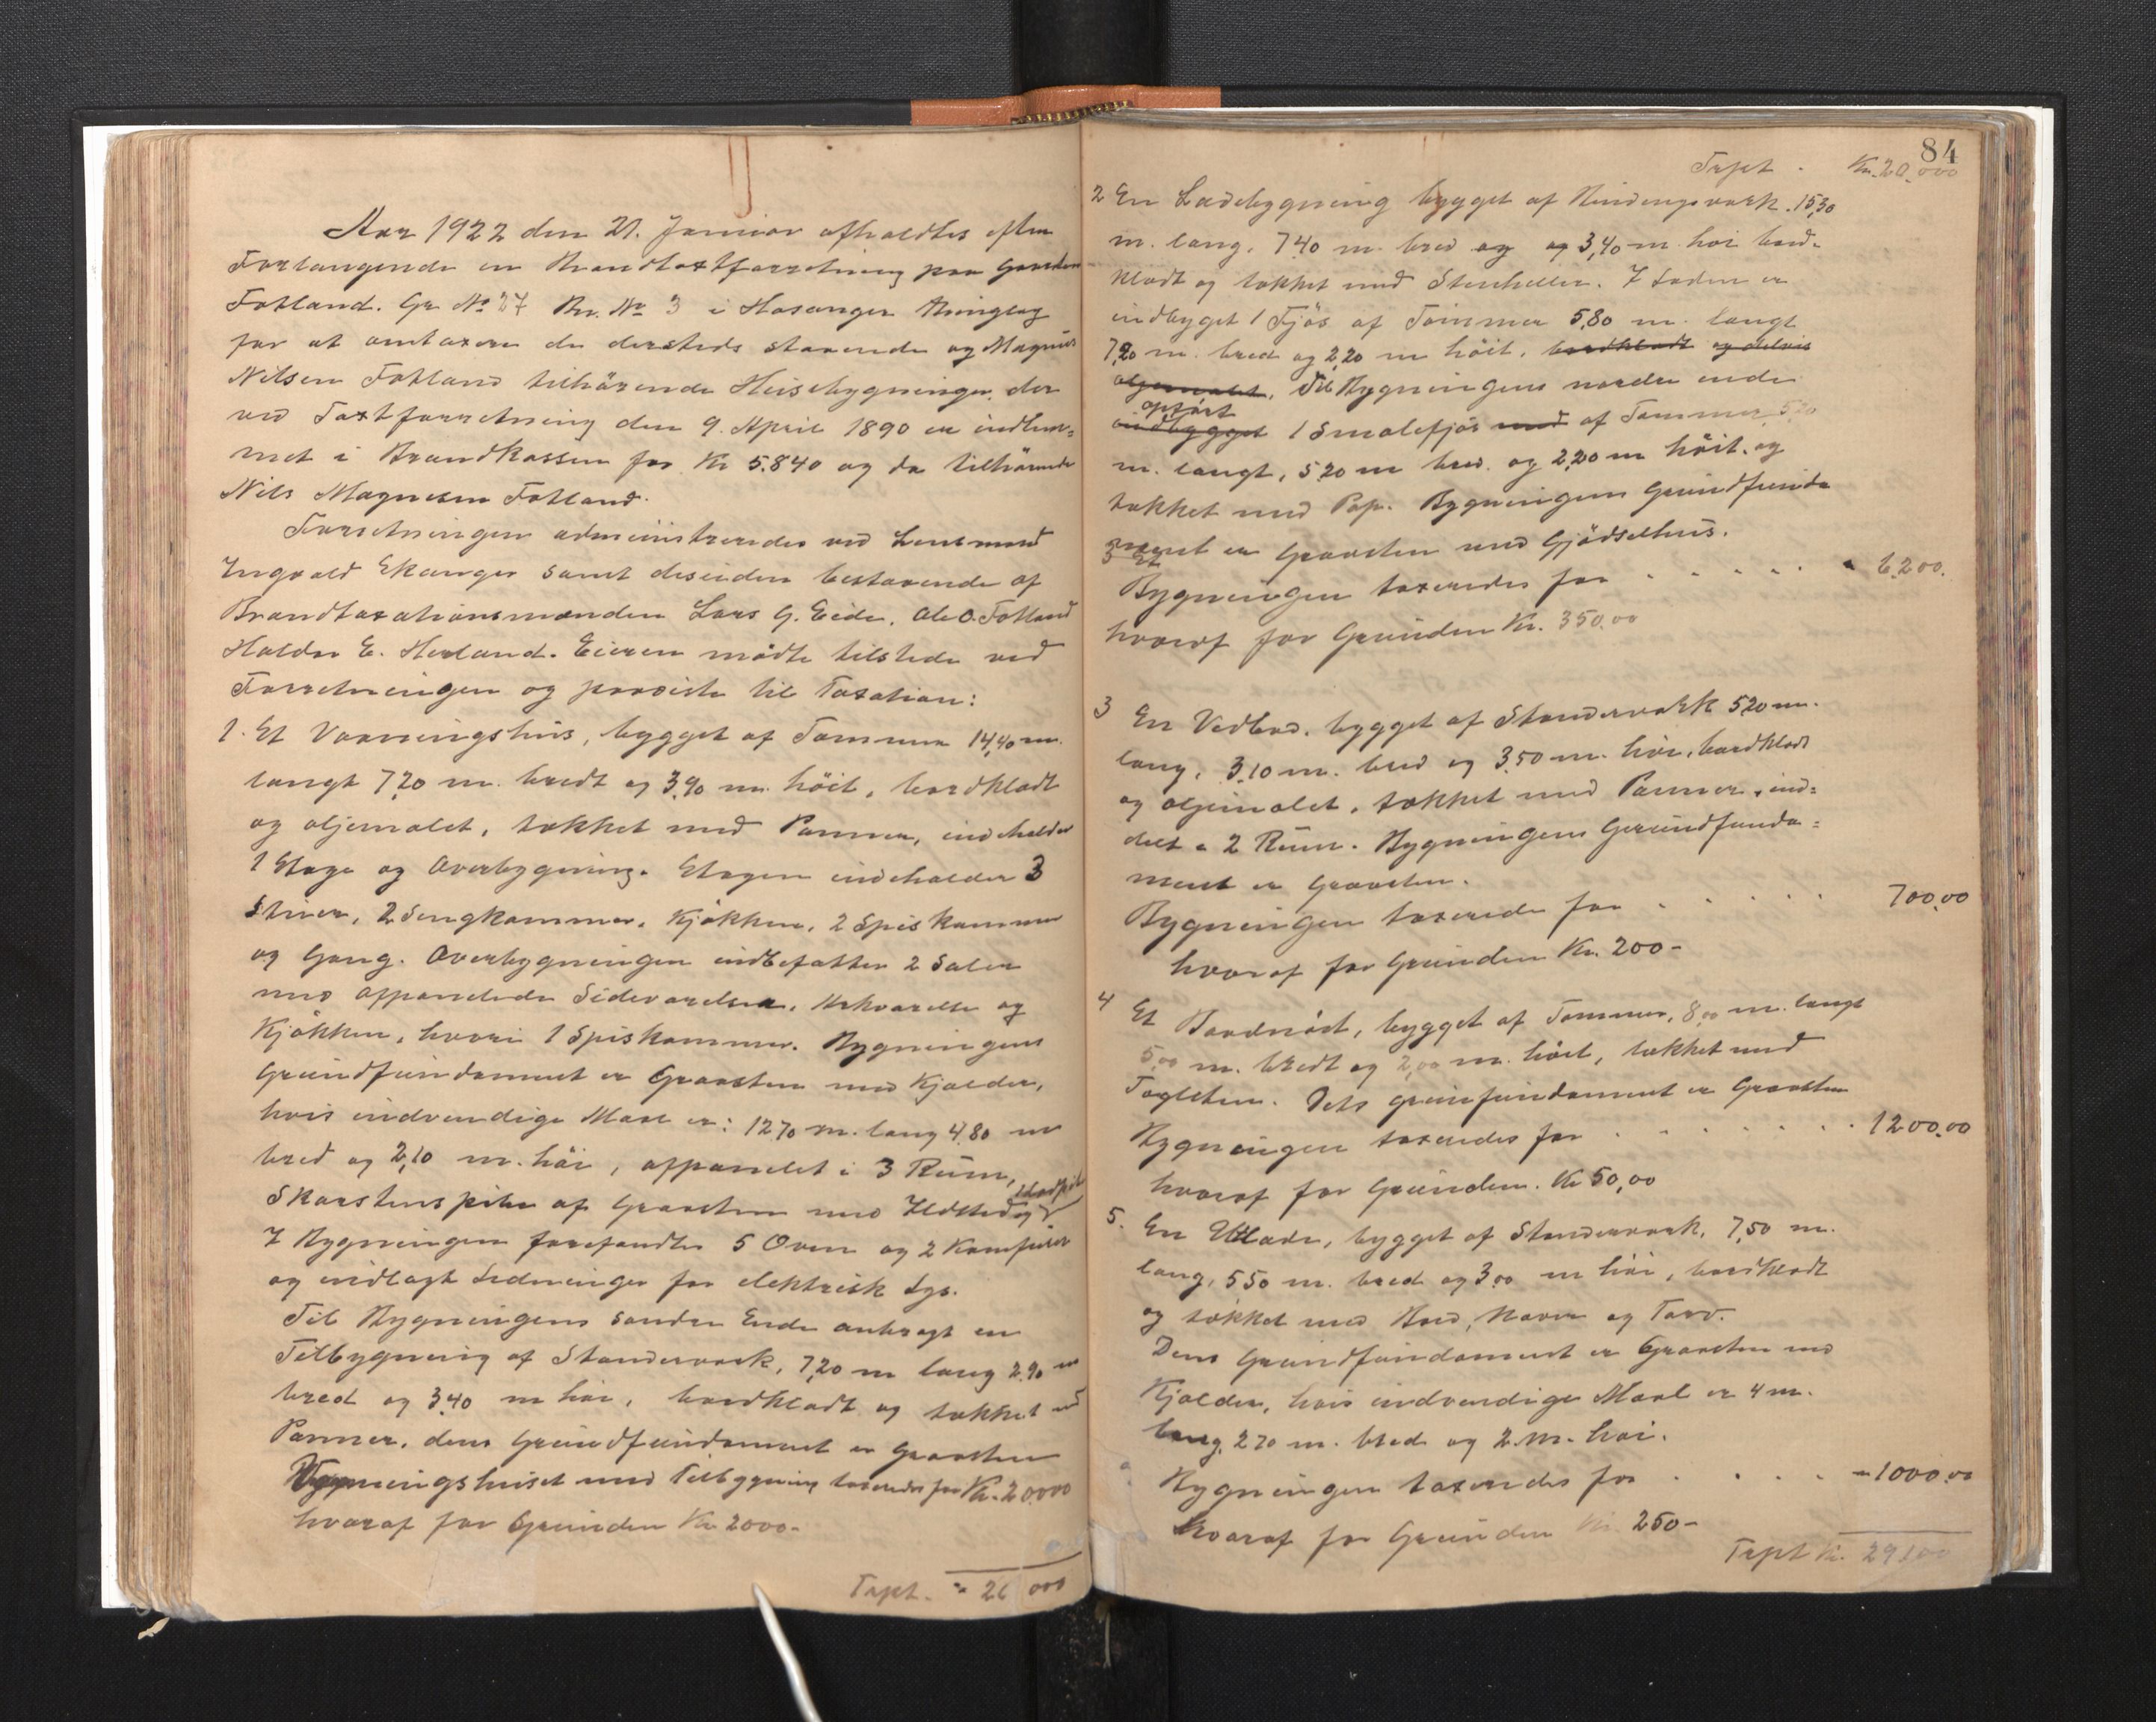 Aar 1922 den 21. Januar afholdtes efter
Forlangende en Brandtaxtforretning paa Gaarden
Fotland. Gr. No 27 Br. No 3 i Hosanger Thinglag
for at omtaxere de dersteds staaende og Magnus
Nilsen Fotland tilhörende Husebygninger, der
ved Taxtforretning den 9. April 1890 er indlem=
met i Brandkassen for Kr 5.840 og da tilhörende
Nils Magnesen Fotland.
Forretningen administreredes ved Lensmand
Ingvald Ekanger samt desuden bestaaende af
Brandtaxationsmænden Lars G. Eide, Ole O. Fotland
Haldor E. Herland. Eieren mödte tilstede ved
Forretningen og paaviste til Taxation:
1. Et Vaaningshus, bygget af Tømmer 14,40 m.
langt 7,20 m. bredt og 3,90 m. höit, bordklædt
og oljemalet, tækket med Panner, indeholder
1 Etage og Overbygning. Etagen indeholder 3
Stuer, 2 Sengkammer, Kjökken, 2 Spiskammer
og Gang. Overbygningen indbefatter 2 Saler
med afpanelede Sideværelser, Arkværelse og
Kjökken, hvori 1 Spiskammer. Bygningens
Grundfundament er Graasten med Kjælder,
hvis indvendige Maal er: 12,70 m. lang 4,80 m
bred og 2,10 m. höi, afpanelet i 3 Rum,
Skorstenspibe af Graasten med Ildsted og
I Bygningen forefandtes 5 Ovne og 2 Komfurer
og indlagt Ledninger for elektrisk Lys.
Til Bygningens søndre Ende anbragt en
Tilbygning af Stenderværk, 7,20 m lang 2,90 m
bred og 3,40 m höi, bordklædt og tækket med
Panner, dens Grundfundament er Graasten
Vaaningshuset med Tilbygning taxeredes for Kr. 20.000
hvoraf for Grunden Kr 2000-
Trpt. " 20 000
84
Trpt . Kr. 20.000
2 En Ladebygning bygget af Bindingsværk. 15,30
m. lang, 7,40 m. bred og og 3,40 m. höi bord-
klædt og tækket med Stenheller. I Laden er
indbyget 1 Fjös af Tömmer 5,80 m. langt
7,20 m. bred og 2,20 m höit, bordklædt og delvis
oljemalet. Til Bygningens nordre ende
opført
indbygget 1 Smalefjös med af Tømmer 5,20
m. langt, 5,20 m bred. og 2,20 m höit. og
tækket med Pap. Bygningens Grundfunda
ment er Graasten med Gjödselhus.
3 Et
Bygningen taxeredes for . . . . . " 6.200.
hvoraf for Grunden Kr. 350.00
3 En Vedbod, bygget af Stenderværk 5,20 m.
lang, 3,10 m. bred og 3,50 m. höi, bordklædt
og oljemalet, tækket med Panner, ind=
delt i 2 Rum. Bygningens Grundfunda=
ment er Graasten.
Bygningen taxeredes for . . . . . 700,00
hvoraf for Grunden Kr. 200-
4 Et Baadnöst, bygget af Tømmer, 8,00 m. langt
5,00 m. bredt og 2,00 m. höit, tækket med
Taglsten. Dets grunfundament er Graasten
Bygningen taxeredes for . . . . . . . 1200,00
hvoraf for Grunden. Kr 50,00
5. En Utlade, bygget af Stenderværk, 7,50 m.
lang, 5,50 m. bred og 3,00 m höi, bordklædt
og tækket med Bord, Næver og Torv.
Dens Grundfundament er Graasten med
Kjælder, hvis indvendige Maal er 4 m.
lang, 2,70 m. bred og 2. m. höi.
Bygningen taxeredes for . . . . " 1000.00
hvoraf for Grunden Kr. 250-
Trpt Kr. 29100